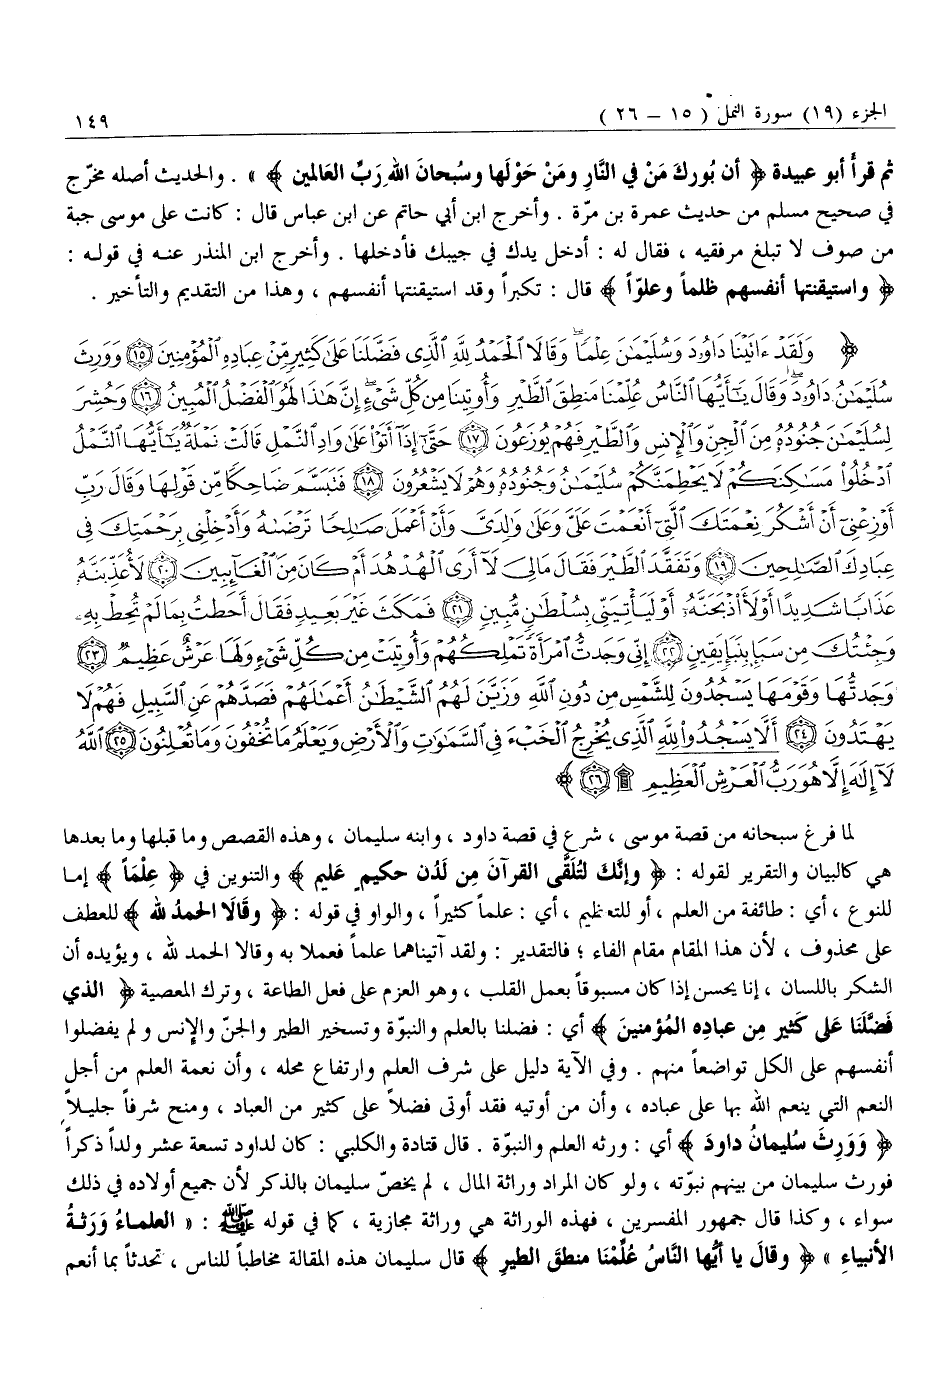 الجزء (١٩) سورة النمل ( ١٥ – ٢٦ ) ١٤٩
ثم قرأ أبو عبيدة ﴿ أن بُورِكَ مَنْ في النَّارِ ومَنْ حَوْلَها وسُبحانَ الله رَبِّ العَالمين ﴾ » . والحديث أصله مخرّج
في صحيح مسلم من حديث عمرة بن مرّة . وأخرج ابن أبي حاتم عن ابن عباس قال : كانت على موسى جبة
من صوف لا تبلغ مرفقيه ، فقال له : أدخل يدك في جيبك فأدخلها . وأخرج ابن المنذر عنه في قوله :
﴿ واستيقنتها أنفسهم ظلماً وعلوّاً ﴾ قال : تكبراً وقد استيقنتها أنفسهم ، وهذا من التقديم والتأخير .
﴿ وَلَقَدْ ءَاتَيْنَا دَاوُۥدَ وَسُلَيْمَٰنَ عِلْمًا ۖ وَقَالَا ٱلْحَمْدُ لِلَّهِ ٱلَّذِى فَضَّلَنَا عَلَىٰ كَثِيرٍ مِّنْ عِبَادِهِ ٱلْمُؤْمِنِينَ ﴿١٥﴾ وَوَرِثَ
سُلَيْمَٰنُ دَاوُۥدَ ۖ وَقَالَ يَٰٓأَيُّهَا ٱلنَّاسُ عُلِّمْنَا مَنطِقَ ٱلطَّيْرِ وَأُوتِينَا مِن كُلِّ شَىْءٍ ۖ إِنَّ هَٰذَا لَهُوَ ٱلْفَضْلُ ٱلْمُبِينُ ﴿١٦﴾ وَحُشِرَ
لِسُلَيْمَٰنَ جُنُودُهُۥ مِنَ ٱلْجِنِّ وَٱلْإِنسِ وَٱلطَّيْرِ فَهُمْ يُوزَعُونَ ﴿١٧﴾ حَتَّىٰٓ إِذَآ أَتَوْا۟ عَلَىٰ وَادِ ٱلنَّمْلِ قَالَتْ نَمْلَةٌ يَٰٓأَيُّهَا ٱلنَّمْلُ
ٱدْخُلُوا۟ مَسَٰكِنَكُمْ لَا يَحْطِمَنَّكُمْ سُلَيْمَٰنُ وَجُنُودُهُۥ وَهُمْ لَا يَشْعُرُونَ ﴿١٨﴾ فَتَبَسَّمَ ضَاحِكًا مِّن قَوْلِهَا وَقَالَ رَبِّ
أَوْزِعْنِىٓ أَنْ أَشْكُرَ نِعْمَتَكَ ٱلَّتِىٓ أَنْعَمْتَ عَلَىَّ وَعَلَىٰ وَٰلِدَىَّ وَأَنْ أَعْمَلَ صَٰلِحًا تَرْضَىٰهُ وَأَدْخِلْنِى بِرَحْمَتِكَ فِى
عِبَادِكَ ٱلصَّٰلِحِينَ ﴿١٩﴾ وَتَفَقَّدَ ٱلطَّيْرَ فَقَالَ مَالِىَ لَآ أَرَى ٱلْهُدْهُدَ أَمْ كَانَ مِنَ ٱلْغَآئِبِينَ ﴿٢٠﴾ لَأُعَذِّبَنَّهُۥ
عَذَابًا شَدِيدًا أَوْ لَأَا۟ذْبَحَنَّهُۥٓ أَوْ لَيَأْتِيَنِّى بِسُلْطَٰنٍ مُّبِينٍ ﴿٢١﴾ فَمَكَثَ غَيْرَ بَعِيدٍ فَقَالَ أَحَطتُ بِمَا لَمْ تُحِطْ بِهِۦ
وَجِئْتُكَ مِن سَبَإٍۭ بِنَبَإٍ يَقِينٍ ﴿٢٢﴾ إِنِّى وَجَدتُّ ٱمْرَأَةً تَمْلِكُهُمْ وَأُوتِيَتْ مِن كُلِّ شَىْءٍ وَلَهَا عَرْشٌ عَظِيمٌ ﴿٢٣﴾
وَجَدتُّهَا وَقَوْمَهَا يَسْجُدُونَ لِلشَّمْسِ مِن دُونِ ٱللَّهِ وَزَيَّنَ لَهُمُ ٱلشَّيْطَٰنُ أَعْمَٰلَهُمْ فَصَدَّهُمْ عَنِ ٱلسَّبِيلِ فَهُمْ لَا
يَهْتَدُونَ ﴿٢٤﴾ أَلَّا يَسْجُدُوا۟ لِلَّهِ ٱلَّذِى يُخْرِجُ ٱلْخَبْءَ فِى ٱلسَّمَٰوَٰتِ وَٱلْأَرْضِ وَيَعْلَمُ مَا تُخْفُونَ وَمَا تُعْلِنُونَ ﴿٢٥﴾ ٱللَّهُ
لَآ إِلَٰهَ إِلَّا هُوَ رَبُّ ٱلْعَرْشِ ٱلْعَظِيمِ ۩ ﴿٢٦﴾ ﴾
لما فرغ سبحانه من قصة موسى ، شرع في قصة داود ، وابنه سليمان ، وهذه القصص وما قبلها وما بعدها
هي كالبيان والتقرير لقوله : ﴿ وإنَّكَ لتُلَقَّى القرآنَ مِن لَدُن حكيمٍ عَليم ﴾ والتنوين في ﴿ عِلْمَاً ﴾ إما
للنوع ، أي : طائفة من العلم ، أو للتعظيم ، أي : علماً كثيراً ، والواو في قوله : ﴿ وقَالَا الحمدُ لله ﴾ للعطف
على محذوف ، لأن هذا المقام مقام الفاء ؛ فالتقدير : ولقد آتيناهما علماً فعملا به وقالا الحمد لله ، ويؤيده أن
الشكر باللسان ، إنما يحسن إذا كان مسبوقاً بعمل القلب ، وهو العزم على فعل الطاعة ، وترك المعصية ﴿ الذي
فَضَّلَنَا عَلى كثيرٍ مِن عبادِه المُؤمنينَ ﴾ أي : فضلنا بالعلم والنبوّة وتسخير الطير والجنّ والإنس ولم يفضلوا
أنفسهم على الكل تواضعاً منهم . وفي الآية دليل على شرف العلم وارتفاع محله ، وأن نعمة العلم من أجل
النعم التي ينعم الله بها على عباده ، وأن من أوتيه فقد أوتى فضلاً على كثير من العباد ، ومنح شرفاً جليلاً
﴿ وَوَرِثَ سُليمانُ داودَ ﴾ أي : ورثه العلم والنبوّة . قال قتادة والكلبي : كان لداود تسعة عشر ولداً ذكراً
فورث سليمان من بينهم نبوّته ، ولو كان المراد وراثة المال ، لم يخصّ سليمان بالذكر لأن جميع أولاده في ذلك
سواء ، وكذا قال جمهور المفسرين ، فهذه الوراثة هي وراثة مجازية ، كما في قوله ﷺ : « العلماءُ وَرَثةُ
الأنبياءِ » ﴿ وقالَ يا أيُّها النَّاسُ عُلِّمْنَا منطقَ الطيرِ ﴾ قال سليمان هذه المقالة مخاطباً للناس ، تحدثاً بما أنعم